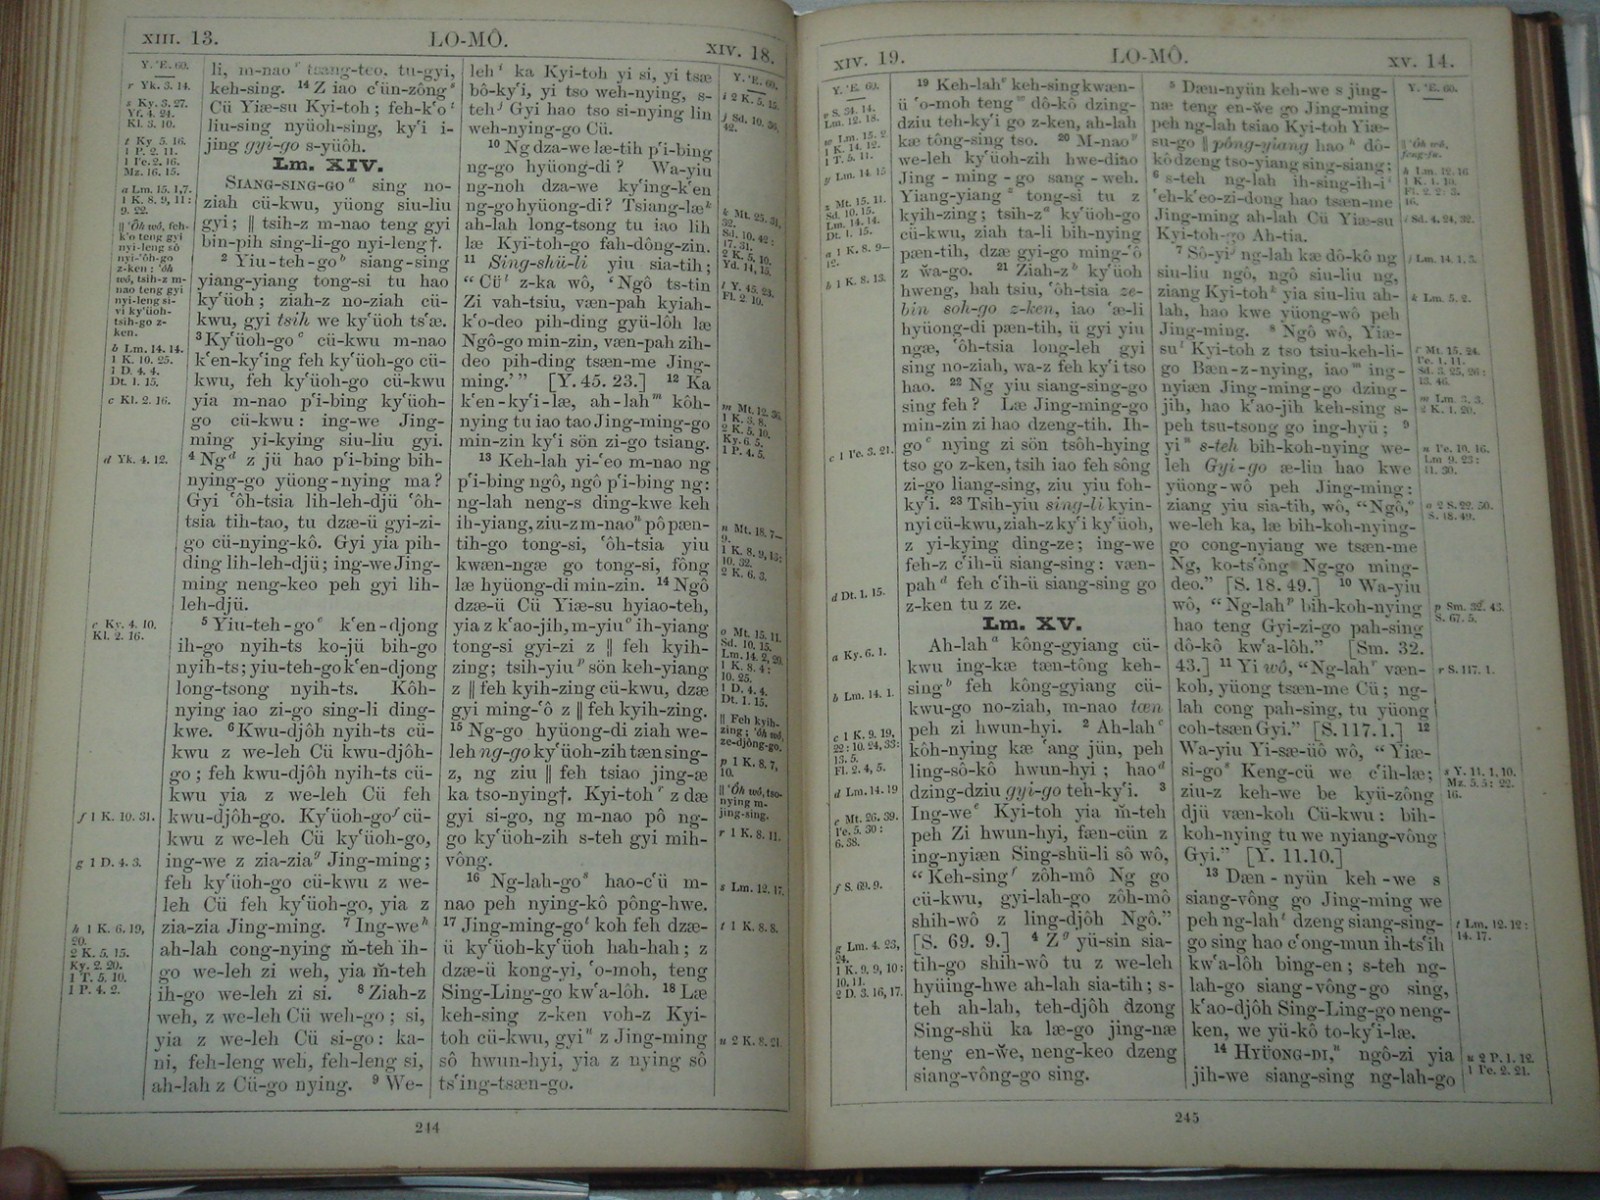 XIII. 13.
LO-MÔ.
XIV. 18.
Y. ʻE. 60.
r Yk. 3. 14.
s Ky. 3. 27.
Yf. 4. 24.
Kl. 3. 10.
t Ky 5. 16.
1 P. 2. 11.
1 Pe. 2. 16.
Mz. 16. 15.
a Lm. 15. 1,7.
1 K. 8. 9, 11:
9. 22.
|| ʻÔh wô, feh-
kʻo teng gyi
nyi-leng sô
nyi-ʻôh-go
z-ken: ʻôh
wô, tsih-z m-
nao teng gyi
nyi-leng si-
vi kyʻüoh-
tsih-go z-
ken.
b Lm. 14. 14.
1 K. 10. 25.
1 D. 4. 4.
Dt. 1. 15.
c Kl. 2. 16.
d Yk. 4. 12.
e Ky. 4. 10.
Kl. 2. 16.
f 1 K. 10. 31.
g 1 D. 4. 3.
h 1 K. 6. 19,
20.
2 K. 5. 15.
Ky. 2. 20.
1 T. 5. 10.
1 P. 4. 2.
li, m-nao r tsang-teo, tu-gyi,
keh-sing. 14 Z iao cʻün-zông s
Cü Yiæ-su Kyi-toh; feh-kʻo t
liu-sing nyüoh-sing, kyʻi i-
jing gyi-go s-yüoh.
Lm. XIV.
SIANG-SING-GO a sing no-
ziah cü-kwu, yüong siu-liu
gyi; || tsih-z m-nao teng gyi
bin-pih sing-li-go nyi-leng†.
2 Yiu-teh-go b siang-sing
yiang-yiang tong-si tu hao
kyʻüoh; ziah-z no-ziah cü-
kwu, gyi tsih we kyʻüoh tsʻæ.
3 Kyʻüoh-go c cü-kwu m-nao
kʻen-kyʻing feh kyʻüoh-go cü-
kwu, feh kyʻüoh-go cü-kwu
yia m-nao pʻi-bing kyʻüoh-
go cü-kwu: ing-we Jing-
ming yi-kying siu-liu gyi.
4 Ng d z jü hao pʻi-bing bih-
nying-go yüong-nying ma?
Gyi ʻôh-tsia lih-leh-djü ʻôh-
tsia tih-tao, tu dzæ-ü gyi-zi-
go cü-nying-kô. Gyi yia pih-
ding lih-leh-djü; ing-we Jing-
ming neng-keo peh gyi lih-
leh-djü.
5 Yiu-teh-go e kʻen-djong
ih-go nyih-ts ko-jü bih-go
nyih-ts; yiu-teh-go kʻen-djong
long-tsong nyih-ts. Kôh-
nying iao zi-go sing-li ding-
kwe. 6 Kwu-djôh nyih-ts cü-
kwu z we-leh Cü kwu-djôh-
go; feh kwu-djôh nyih-ts cü-
kwu yia z we-leh Cü feh
kwu-djôh-go. Kyʻüoh-go f cü-
kwu z we-leh Cü kyʻüoh-go,
ing-we z zia-zia g Jing-ming;
feh kyʻüoh-go cü-kwu z we-
leh Cü feh kyʻüoh-go, yia z
zia-zia Jing-ming. 7 Ing-we h
ah-lah cong-nying m̆-teh ih-
go we-leh zi weh, yia m̆-teh
ih-go we-leh zi si. 8 Ziah-z
weh, z we-leh Cü weh-go; si,
yia z we-leh Cü si-go: ka-
ni, feh-leng weh, feh-leng si,
ah-lah z Cü-go nying. 9 We-
leh i ka Kyi-toh yi si, yi tsæ
bô-kyʻi, yi tso weh-nying, s-
teh j Gyi hao tso si-nying lin
weh-nying-go Cü.
10 Ng dza-we læ-tih pʻi-bing
ng-go hyüong-di? Wa-yiu
ng-noh dza-we kyʻing-kʻen
ng-go hyüong-di? Tsiang-læ k
ah-lah long-tsong tu iao lih
læ Kyi-toh-go fah-dông-zin.
11 Sing-shü-li yiu sia-tih;
“Cü l z-ka wô, ‘Ngô ts-tin
Zi vah-tsiu, væn-pah kyiah-
kʻo-deo pih-ding gyü-lôh læ
Ngô-go min-zin, væn-pah zih-
deo pih-ding tsæn-me Jing-
ming.’” [Y. 45. 23.] 12 Ka
kʻen-kyʻi-læ, ah-lah m kôh-
nying tu iao tao Jing-ming-go
min-zin kyʻi sön zi-go tsiang.
13 Keh-lah yi-ʻeo m-nao ng
pʻi-bing ngô, ngô pʻi-bing ng:
ng-lah neng-s ding-kwe keh
ih-yiang, ziu-z m-nao n pô pæn-
tih-go tong-si, ʻôh-tsia yiu
kwæn-ngæ go tong-si, fông
læ hyüong-di min-zin. 14 Ngô
dzæ-ü Cü Yiæ-su hyiao-teh,
yia z kʻao-jih, m-yiu o ih-yiang
tong-si gyi-zi z || feh kyih-
zing; tsih-yiu p sön keh-yiang
z || feh kyih-zing cü-kwu, dzæ
gyi ming-ʻô z || feh kyih-zing.
15 Ng-go hyüong-di ziah we-
leh ng-go kyʻüoh-zih tæn sing-
z, ng ziu || feh tsiao jing-æ
ka tso-nying†. Kyi-toh r z dæ
gyi si-go, ng m-nao pô ng-
go kyʻüoh-zih s-teh gyi mih-
vông.
16 Ng-lah-go s hao-cʻü m-
nao peh nying-kô pông-hwe.
17 Jing-ming-go t koh feh dzæ-
ü kyʻüoh-kyʻüoh hah-hah; z
dzæ-ü kong-yi, ʻo-moh, teng
Sing-Ling-go kwʻa-lôh. 18 Læ
keh-sing z-ken voh-z Kyi-
toh cü-kwu, gyi u z Jing-ming
sô hwun-hyi, yia z nying sô
tsʻing-tsæn-go.
Y. ʻE. 60.
i 2 K. 5. 15.
j Sd. 10. 36,
42.
k Mt. 25. 31,
32.
Sd. 10. 42:
17. 31.
2 K. 5. 10.
Yd. 14, 15.
l Y. 45. 23.
Fl. 2 10.
m Mt. 12. 36.
1 K. 3. 8.
2 K. 5. 10.
Ky. 6. 5.
1 P. 4. 5.
n Mt. 18. 7–
9.
1 K. 8. 9, 13:
10. 32.
2 K. 6. 3.
o Mt. 15. 11.
Sd. 10. 15.
Lm. 14. 2, 20.
1 K. 8. 4:
10. 25.
1 D. 4. 4.
Dt. 1. 15.
|| Feh kyih-
zing; ʻôh wô,
ze-djông-go.
p 1 K. 8. 7,
10.
|| ʻÔh wô, tso-
nying m-
jing-sing.
r 1 K. 8. 11.
s Lm. 12. 17.
t 1 K. 8. 8.
u 2 K. 8. 21.
244
XIV. 19.
LO-MÔ.
XV. 14.
Y. ʻE. 60.
v S. 34. 14.
Lm. 12. 18.
w Lm. 15. 2.
1 K. 14. 12.
1 T. 5. 11.
y Lm. 14. 15
z Mt. 15. 11.
Sd. 10. 15.
Lm. 14. 14.
Dt. 1. 15.
a 1 K. 8. 9–
12.
b 1 K. 8. 13.
c 1 Pe. 3. 21.
d Dt. 1. 15.
a Ky. 6. 1.
b Lm. 14. 1.
c 1 K. 9. 19,
22: 10. 24, 33:
13. 5.
Fl. 2. 4, 5.
d Lm. 14. 19
e Mt. 26. 39.
Pe. 5. 30:
6. 38.
f S. 69. 9.
g Lm. 4. 23,
24.
1 K. 9. 9, 10:
10. 11.
2 D. 3. 16, 17.
19 Keh-lah v keh-sing kwæn-
ü ʻo-moh teng w dô-kô dzing-
dziu teh-kyʻi go z-ken, ah-lah
kæ tông-sing tso. 20 M-nao y
we-leh kyʻüoh-zih hwe-diao
Jing-ming-go sang-weh.
Yiang-yiang z tong-si tu z
kyih-zing; tsih-z a kyʻüoh-go
cü-kwu, ziah ta-li bih-nying
pæn-tih, dzæ gyi-go ming-ʻô
z wa-go. 21 Ziah-z b kyʻüoh
hweng, hah tsiu, ʻôh-tsia ze-
bin soh-go z-ken, iao ʻæ-li
hyüong-di pæn-tih, ü gyi yiu
ngæ, ʻôh-tsia long-leh gyi
sing no-ziah, wa-z feh kyʻi tso
hao. 22 Ng yiu siang-sing-go
sing feh? Læ Jing-ming-go
min-zin zi hao dzeng-tih. Ih-
go c nying zi sön tsôh-hying
tso go z-ken, tsih iao feh sông
zi-go liang-sing, ziu yiu foh-
kyʻi. 23 Tsih-yiu sing-li kyin-
nyi cü-kwu, ziah-z kyʻi kyʻüoh,
z yi-kying ding-ze; ing-we
feh-z cʻih-ü siang-sing: væn-
pah d feh cʻih-ü siang-sing go
z-ken tu z ze.
Lm. XV.
Ah-lah a kông-gyiang cü-
kwu ing-kæ tæn-tông keh-
sing b feh kông-gyiang cü-
kwu-go no-ziah, m-nao tæn
peh zi hwun-hyi. 2 Ah-lah c
kôh-nying kæ ʻang jün, peh
ling-sô-kô hwun-hyi; hao d
dzing-dziu gyi-go teh-kyʻi. 3
Ing-we e Kyi-toh yia m̆-teh
peh Zi hwun-hyi, fæn-cün z
ing-nyiæn Sing-shü-li sô wô,
“Keh-sing f zôh-mô Ng go
cü-kwu, gyi-lah-go zôh-mô
shih-wô z ling-djôh Ngô.”
[S. 69. 9.] 4 Z g yü-sin sia-
tih-go shih-wô tu z we-leh
hyüing-hwe ah-lah sia-tih; s-
teh ah-lah, teh-djôh dzong
Sing-shü ka læ-go jing-næ
teng en-we, neng-keo dzeng
siang-vông-go sing.
5 Dæn-nyün keh-we s jing-
næ teng en-we go Jing-ming
peh ng-lah tsiao Kyi-toh Yiæ-
su-go || pông-yiang hao h dô-
kô dzeng tso-yiang sing-siang;
6 s-teh ng-lah ih-sing-ih-i i
ʻeh-kʻeo-zi-dong hao tsæn-me
Jing-ming ah-lah Cü Yiæ-su
Kyi-toh-go Ah-tia.
7 Sô-yi j ng-lah kæ dô-kô ng
siu-liu ngô, ngô siu-liu ng,
ziang Kyi-toh k yia siu-liu ah-
lah, hao kwe yüong-wô peh
Jing-ming. 8 Ngô wô, Yiæ-
su l Kyi-toh z tso tsiu-keh-li-
go Bæn-z-nying, iao m ing-
nyiæn Jing-ming-go dzing-
jih, hao kʻao-jih keh-sing s-
peh tsu-tsong go ing-hyü; 9
yi n s-teh bih-koh-nying we-
leh Gyi-go æ-lin hao kwe
yüong-wô peh Jing-ming:
ziang yiu sia-tih, wô, “Ngô, o
we-leh ka, læ bih-koh-nying-
go cong-nyiang we tsæn-me
Ng, ko-tsʻông Ng-go ming-
deo.” [S. 18. 49.] 10 Wa-yiu
wô, “Ng-lah p bih-koh-nying
hao teng Gyi-zi-go pah-sing
dô-kô kwʻa-lôh.” [Sm. 32.
43.] 11 Yi wô, “Ng-lah r væn-
koh, yüong tsæn-me Cü; ng-
lah cong pah-sing, tu yüong
coh-tsæn Gyi.” [S. 117. 1.] 12
Wa-yiu Yi-sæ-üô wô, “Yiæ-
si-go s Keng-cü we cʻih-læ;
ziu-z keh-we be kyü-zông
djü væn-koh Cü-kwu: bih-
koh-nying tu we nyiang-vông
Gyi.” [Y. 11. 10.]
13 Dæn-nyün keh-we s
siang-vông go Jing-ming we
peh ng-lah t dzeng siang-sing-
go sing hao cʻong-mun ih-tsʻih
kwʻa-lôh bing-en; s-teh ng-
lah-go siang-vông-go sing,
kʻao-djôh Sing-Ling-go neng-
ken, we yü-kô to-kyʻi-læ.
14 HYÜONG-DI, u ngô-zi yia
jih-we siang-sing ng-lah-go
Y. ʻE. 60.
|| ʻÔh wô,
h Lm. 12. 16
1 K. 1. 10.
Fl. 2. 2: 3.
16.
i Sd. 4. 24, 32.
j Lm. 14. 1, 3.
k Lm. 5. 2.
l Mt. 15. 24.
Pe. 1. 11.
Sd. 3. 25, 26:
13. 46.
m Lm. 3. 3.
2 K. 1. 20.
n Pe. 10. 16.
Lm 9. 23:
11. 30.
o 2 S. 22. 50.
S. 18. 49.
p Sm. 32. 43.
S. 67. 5.
r S. 117. 1.
s Y. 11. 1, 10.
Mz. 5. 5: 22.
16.
t Lm. 12. 12:
14. 17.
u 2 P. 1. 12.
1 Pe. 2. 21.
245